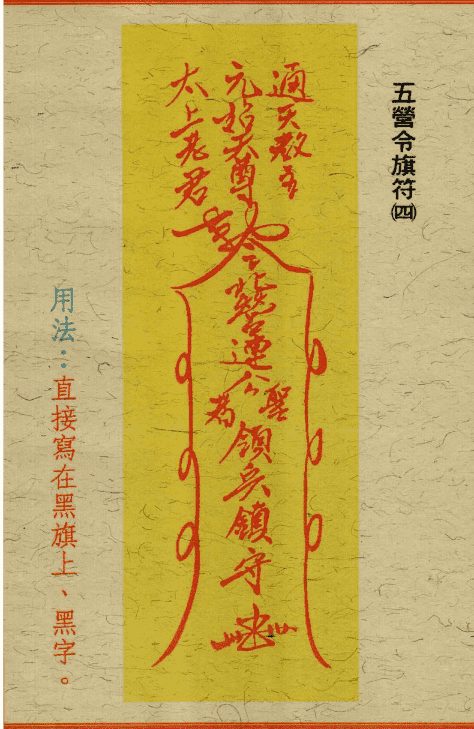 五營令旗符㈣
通天教主
元始天尊
太上老君
北營連公聖者領兵鎮守
用法：直接寫在黑旗上、黑字。